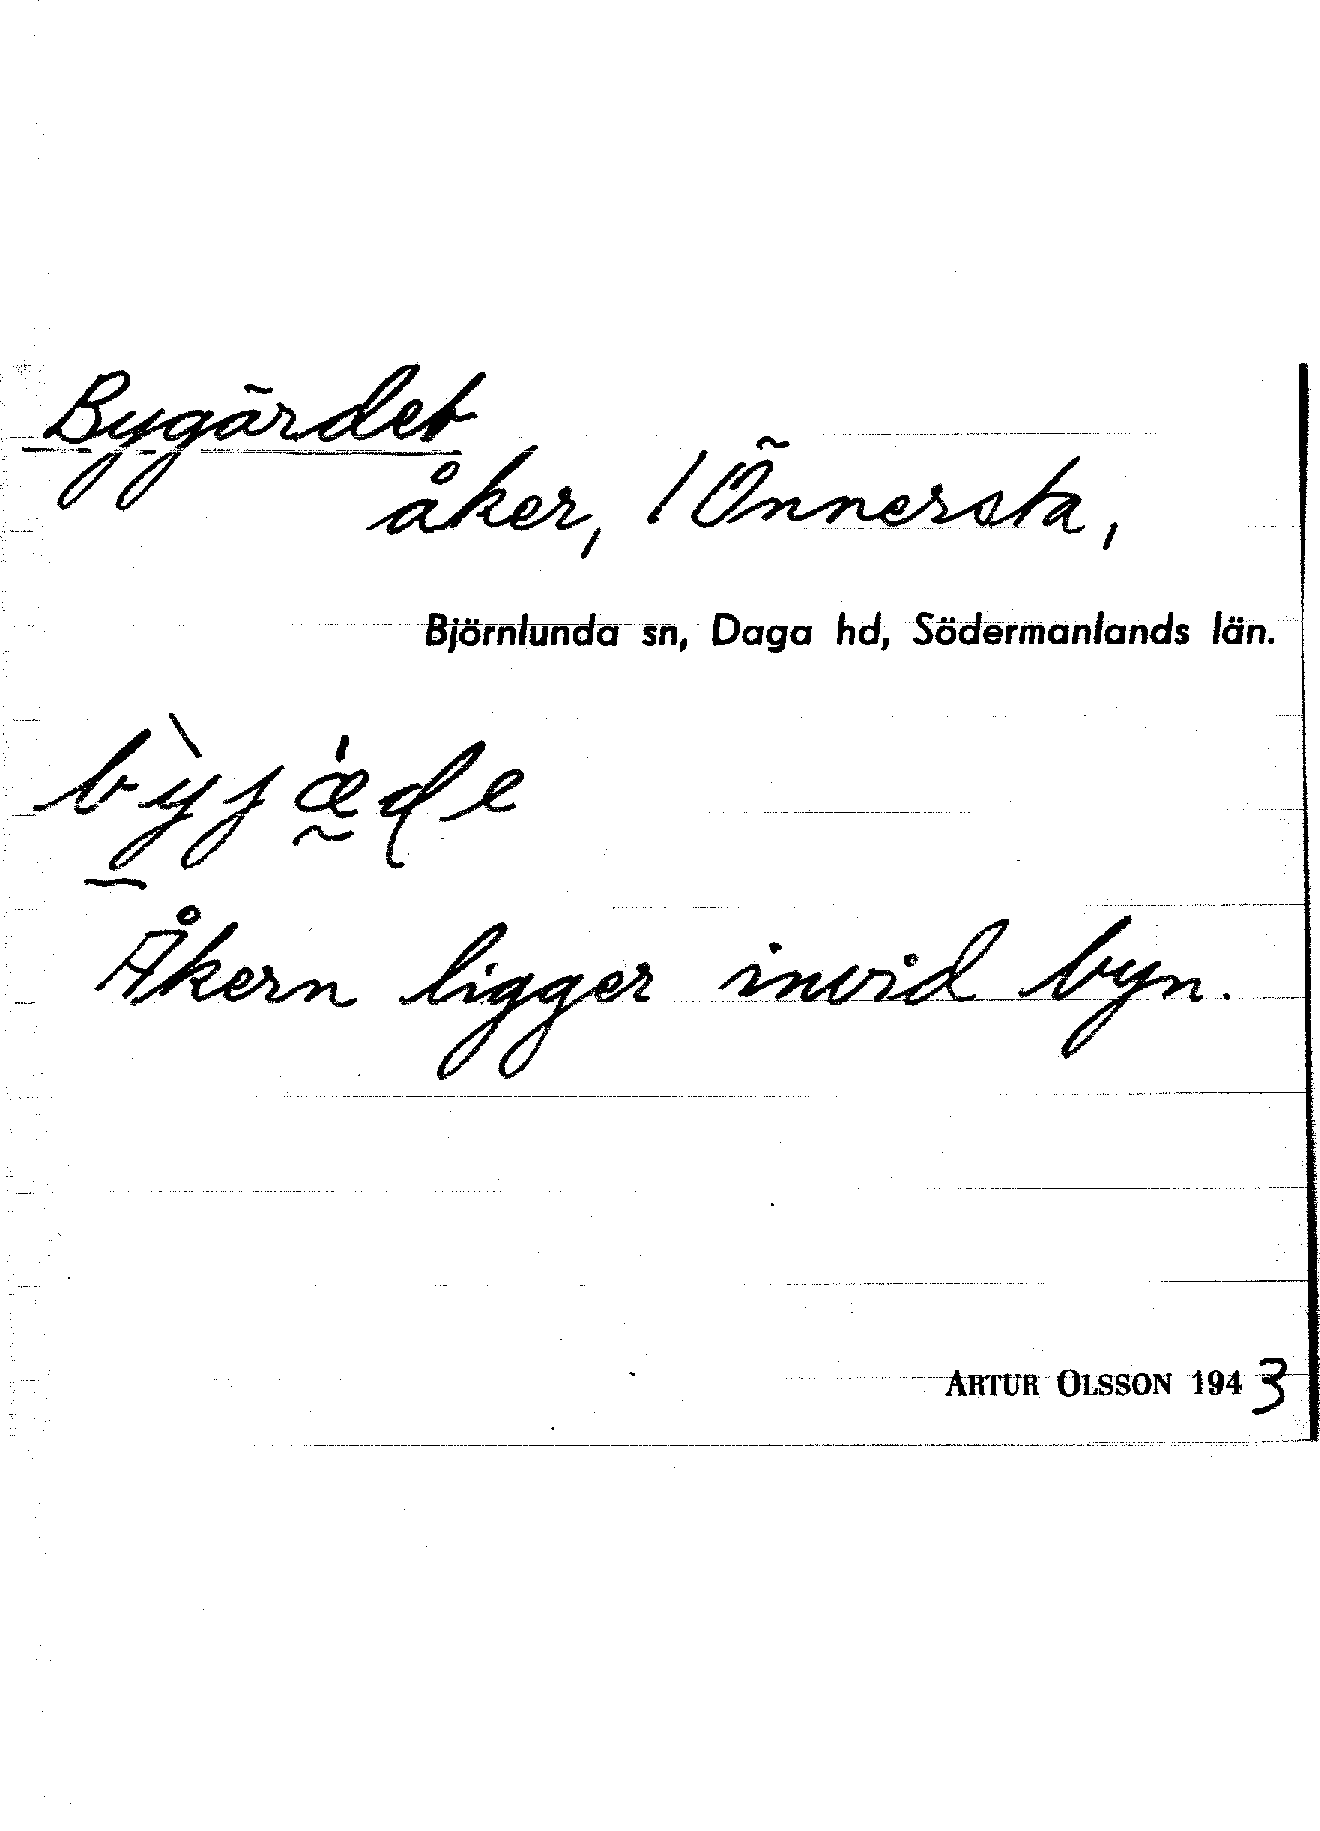 Bygärdet
åker, / Önnersta,
Björnlunda sn, Daga hd, Södermanlands län.
Åkern ligger invid byn.
ARTUR OLSSON 1943